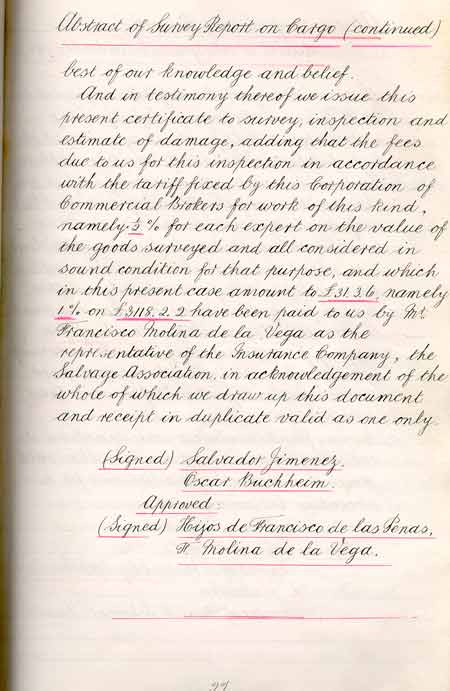 Abstract of Survey Report on Cargo (continued)
best of our knowledge and belief.
And in testimony thereof we issue this
present certificate to survey, inspection and
estimate of damage, adding that the fees
due to us for this inspection in accordance
with the tariff fixed by this Corporation of
Commercial Brokers for work of this kind,
namely ½ % for each expert on the value of
the goods surveyed and all considered in
sound condition for that purpose, and which
in this present case amount to £31.3.6, namely
1% on £3118.2.2 have been paid to us by Mr.
Francisco Molina de la Vega as the
representative of the Insurance Company, the
Salvage Association. in acknowledgement of the
whole of which we draw up this document
and receipt in duplicate valid as one only.
(Signed) Salvador Jimenez.
Oscar Buchheim.
Approved:
(Signed) Hijos de Francisco de las Penas,
Molina de la Vega.